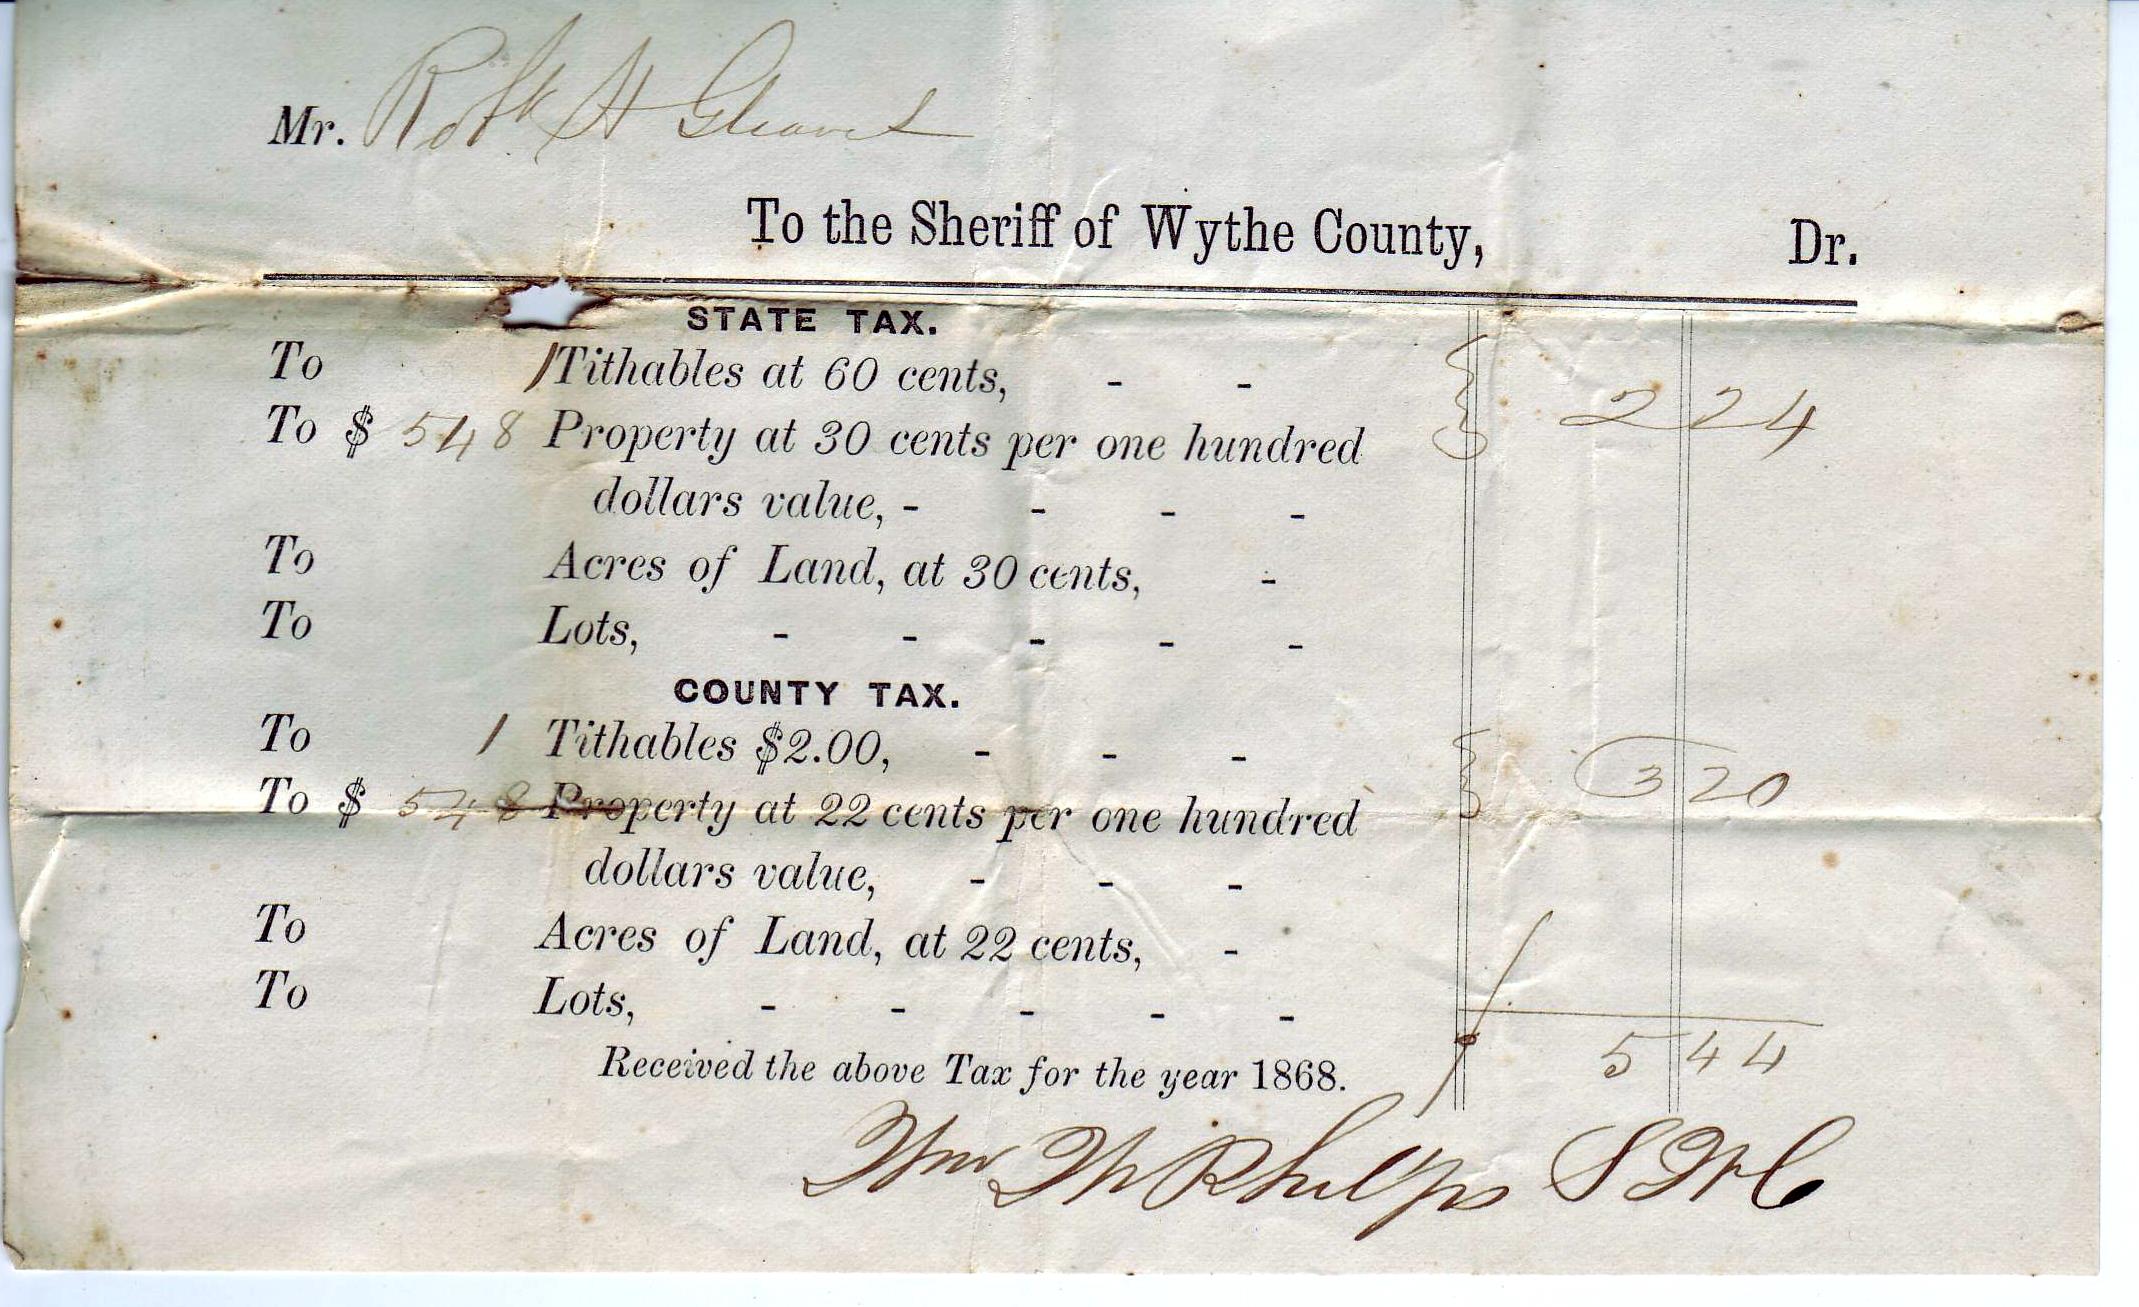 Mr. Robt H Gleaves
To the Sheriff of Wythe County, Dr.
STATE TAX.
To 1 Tithables at 60 cents, - -
To $ 548 Property at 30 cents per one hundred 2 24
dollars value, - - - -
To Acres of Land, at 30 cents, -
To Lots, - - - - -
COUNTY TAX.
To 1 Tithables $2.00, - - -
To $ 548 Property at 22 cents per one hundred 3 20
dollars value, - - -
To Acres of Land, at 22 cents, -
To Lots, - - - - -
Received the above Tax for the year 1868. 5 44
Wm W Phelps S W C